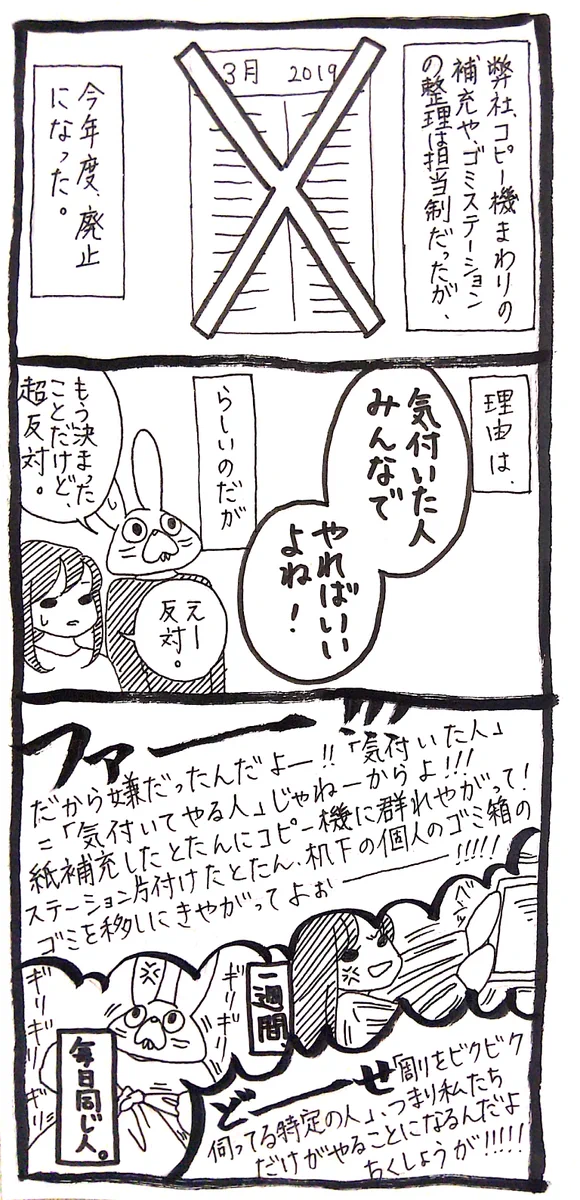 弊社、コピー機まわりの
補充や、ゴミステーション
の整理は担当制だったが、
3月 2019
今年度、廃止
になった。
理由は、
気付いた人
みんなで
やればいい
よね！
らしいのだが
もう決まった
ことだけど、
超反対。
えー
反対。
ファーーー!!!
だから嫌だったんだよー!!「気付いた人」
=「気付いてやる人」じゃねーからよ!!!
紙補充したとたんにコピー機に群れやがって!
ステーション片付けたとたん、机下の個人のゴミ箱の
ゴミを移しにきやがってよぉ―――!!!!!
バンッ
一週間、
ギリギリ
ギリギリ
ギリ
ギリ
毎日同じ人。
どーーーせ「周りをビクビク
伺ってる特定の人」、つまり私たち
だけがやることになるんだよ
ちくしょうが!!!!!